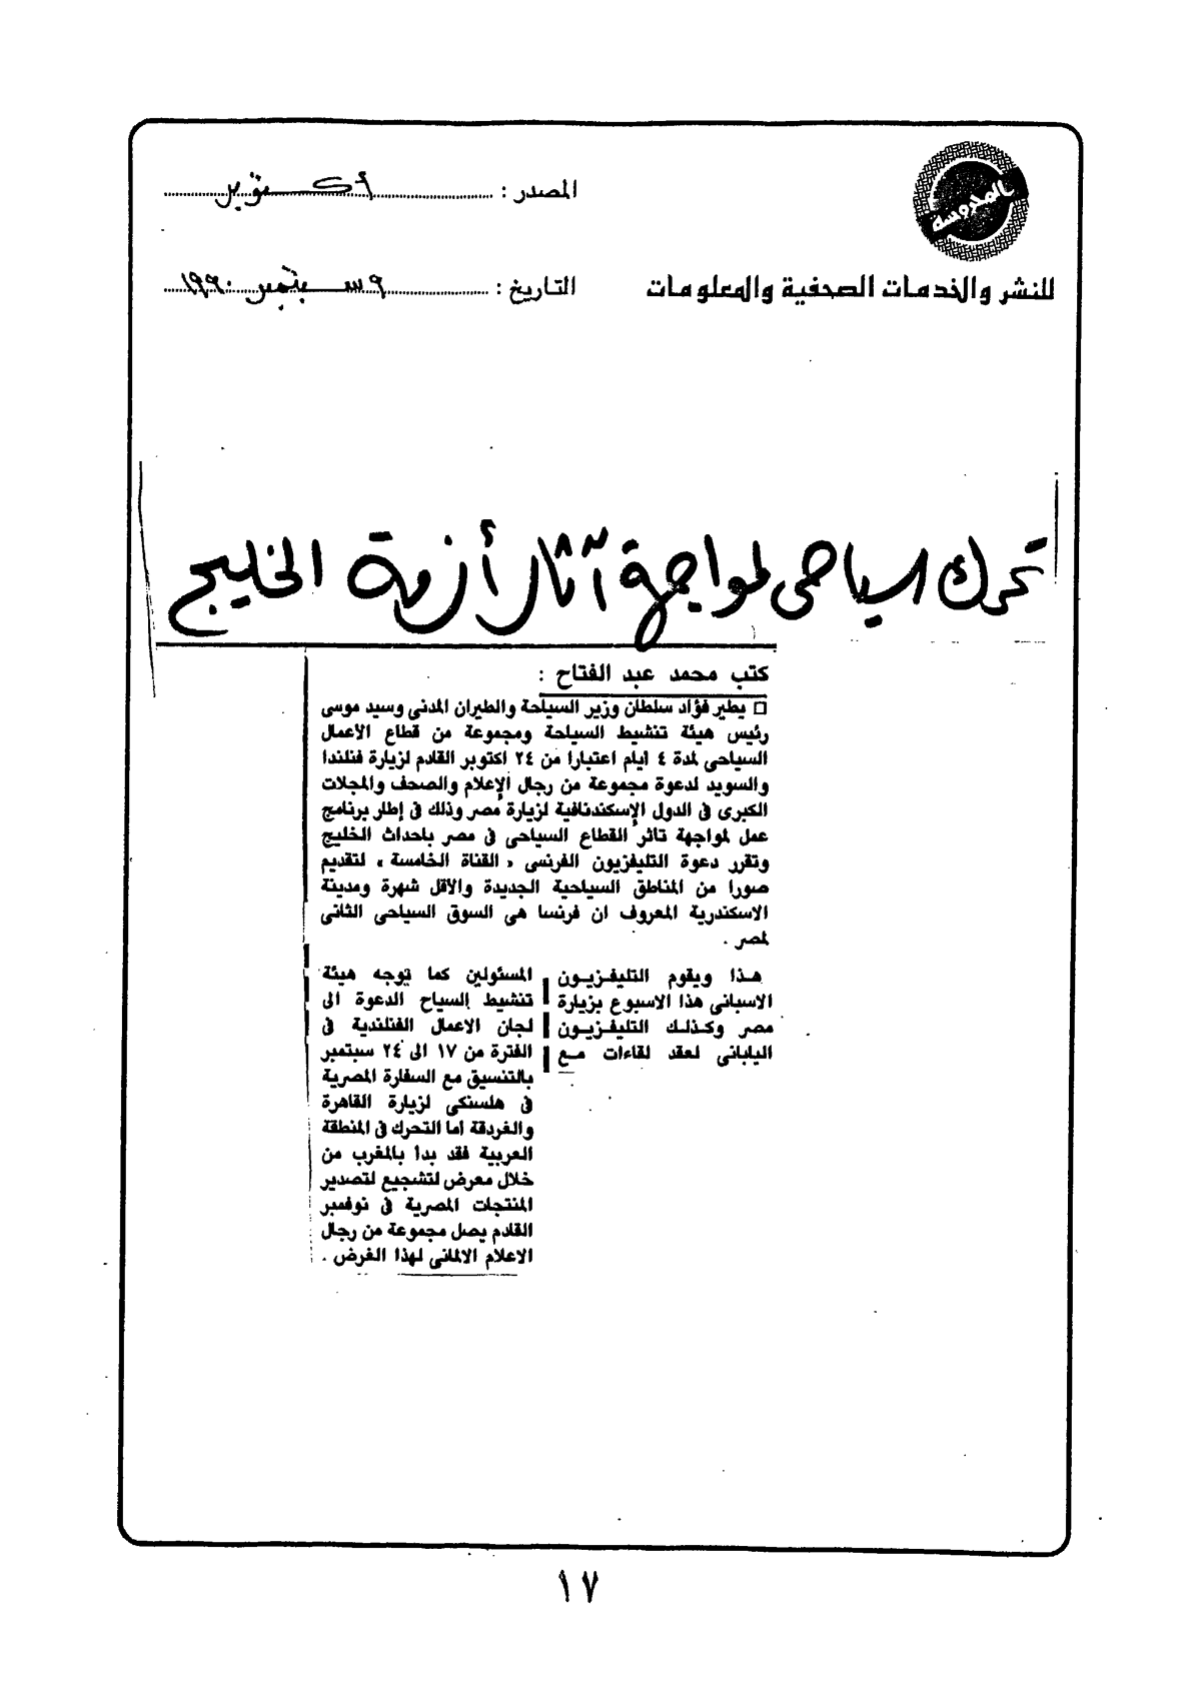 المحروسة
للنشر والخدمات الصحفية والمعلومات
المصدر : أكتوبر
التاريخ : ٩ سبتمبر ١٩٩٠
تحرك سياحى لمواجهة آثار أزمة الخليج
كتب محمد عبد الفتاح :
□ يطير فؤاد سلطان وزير السياحة والطيران المدنى وسيد موسى
رئيس هيئة تنشيط السياحة ومجموعة من قطاع الأعمال
السياحى لمدة ٤ ايام اعتبارا من ٢٤ اكتوبر القادم لزيارة فنلندا
والسويد لدعوة مجموعة من رجال الإعلام والصحف والمجلات
الكبرى فى الدول الإسكندنافية لزيارة مصر وذلك فى إطار برنامج
عمل لمواجهة تاثر القطاع السياحى فى مصر باحداث الخليج
وتقرر دعوة التليفزيون الفرنسى « القناة الخامسة » لتقديم
صورا من المناطق السياحية الجديدة والأقل شهرة ومدينة
الاسكندرية المعروف ان فرنسا هى السوق السياحى الثانى
لمصر .
هذا ويقوم التليفزيون
الاسبانى هذا الاسبوع بزيارة
مصر وكذلك التليفزيون
اليابانى لعقد لقاءات مع
المسئولين كما توجه هيئة
تنشيط السياح الدعوة الى
لجان الاعمال الفنلندية فى
الفترة من ١٧ الى ٢٤ سبتمبر
بالتنسيق مع السفارة المصرية
فى هلسنكى لزيارة القاهرة
والغردقة اما التحرك فى المنطقة
العربية فقد بدأ بالمغرب من
خلال معرض لتشجيع لتصدير
المنتجات المصرية فى نوفمبر
القادم يصل مجموعة من رجال
الاعلام الالمانى لهذا الغرض .
١٧